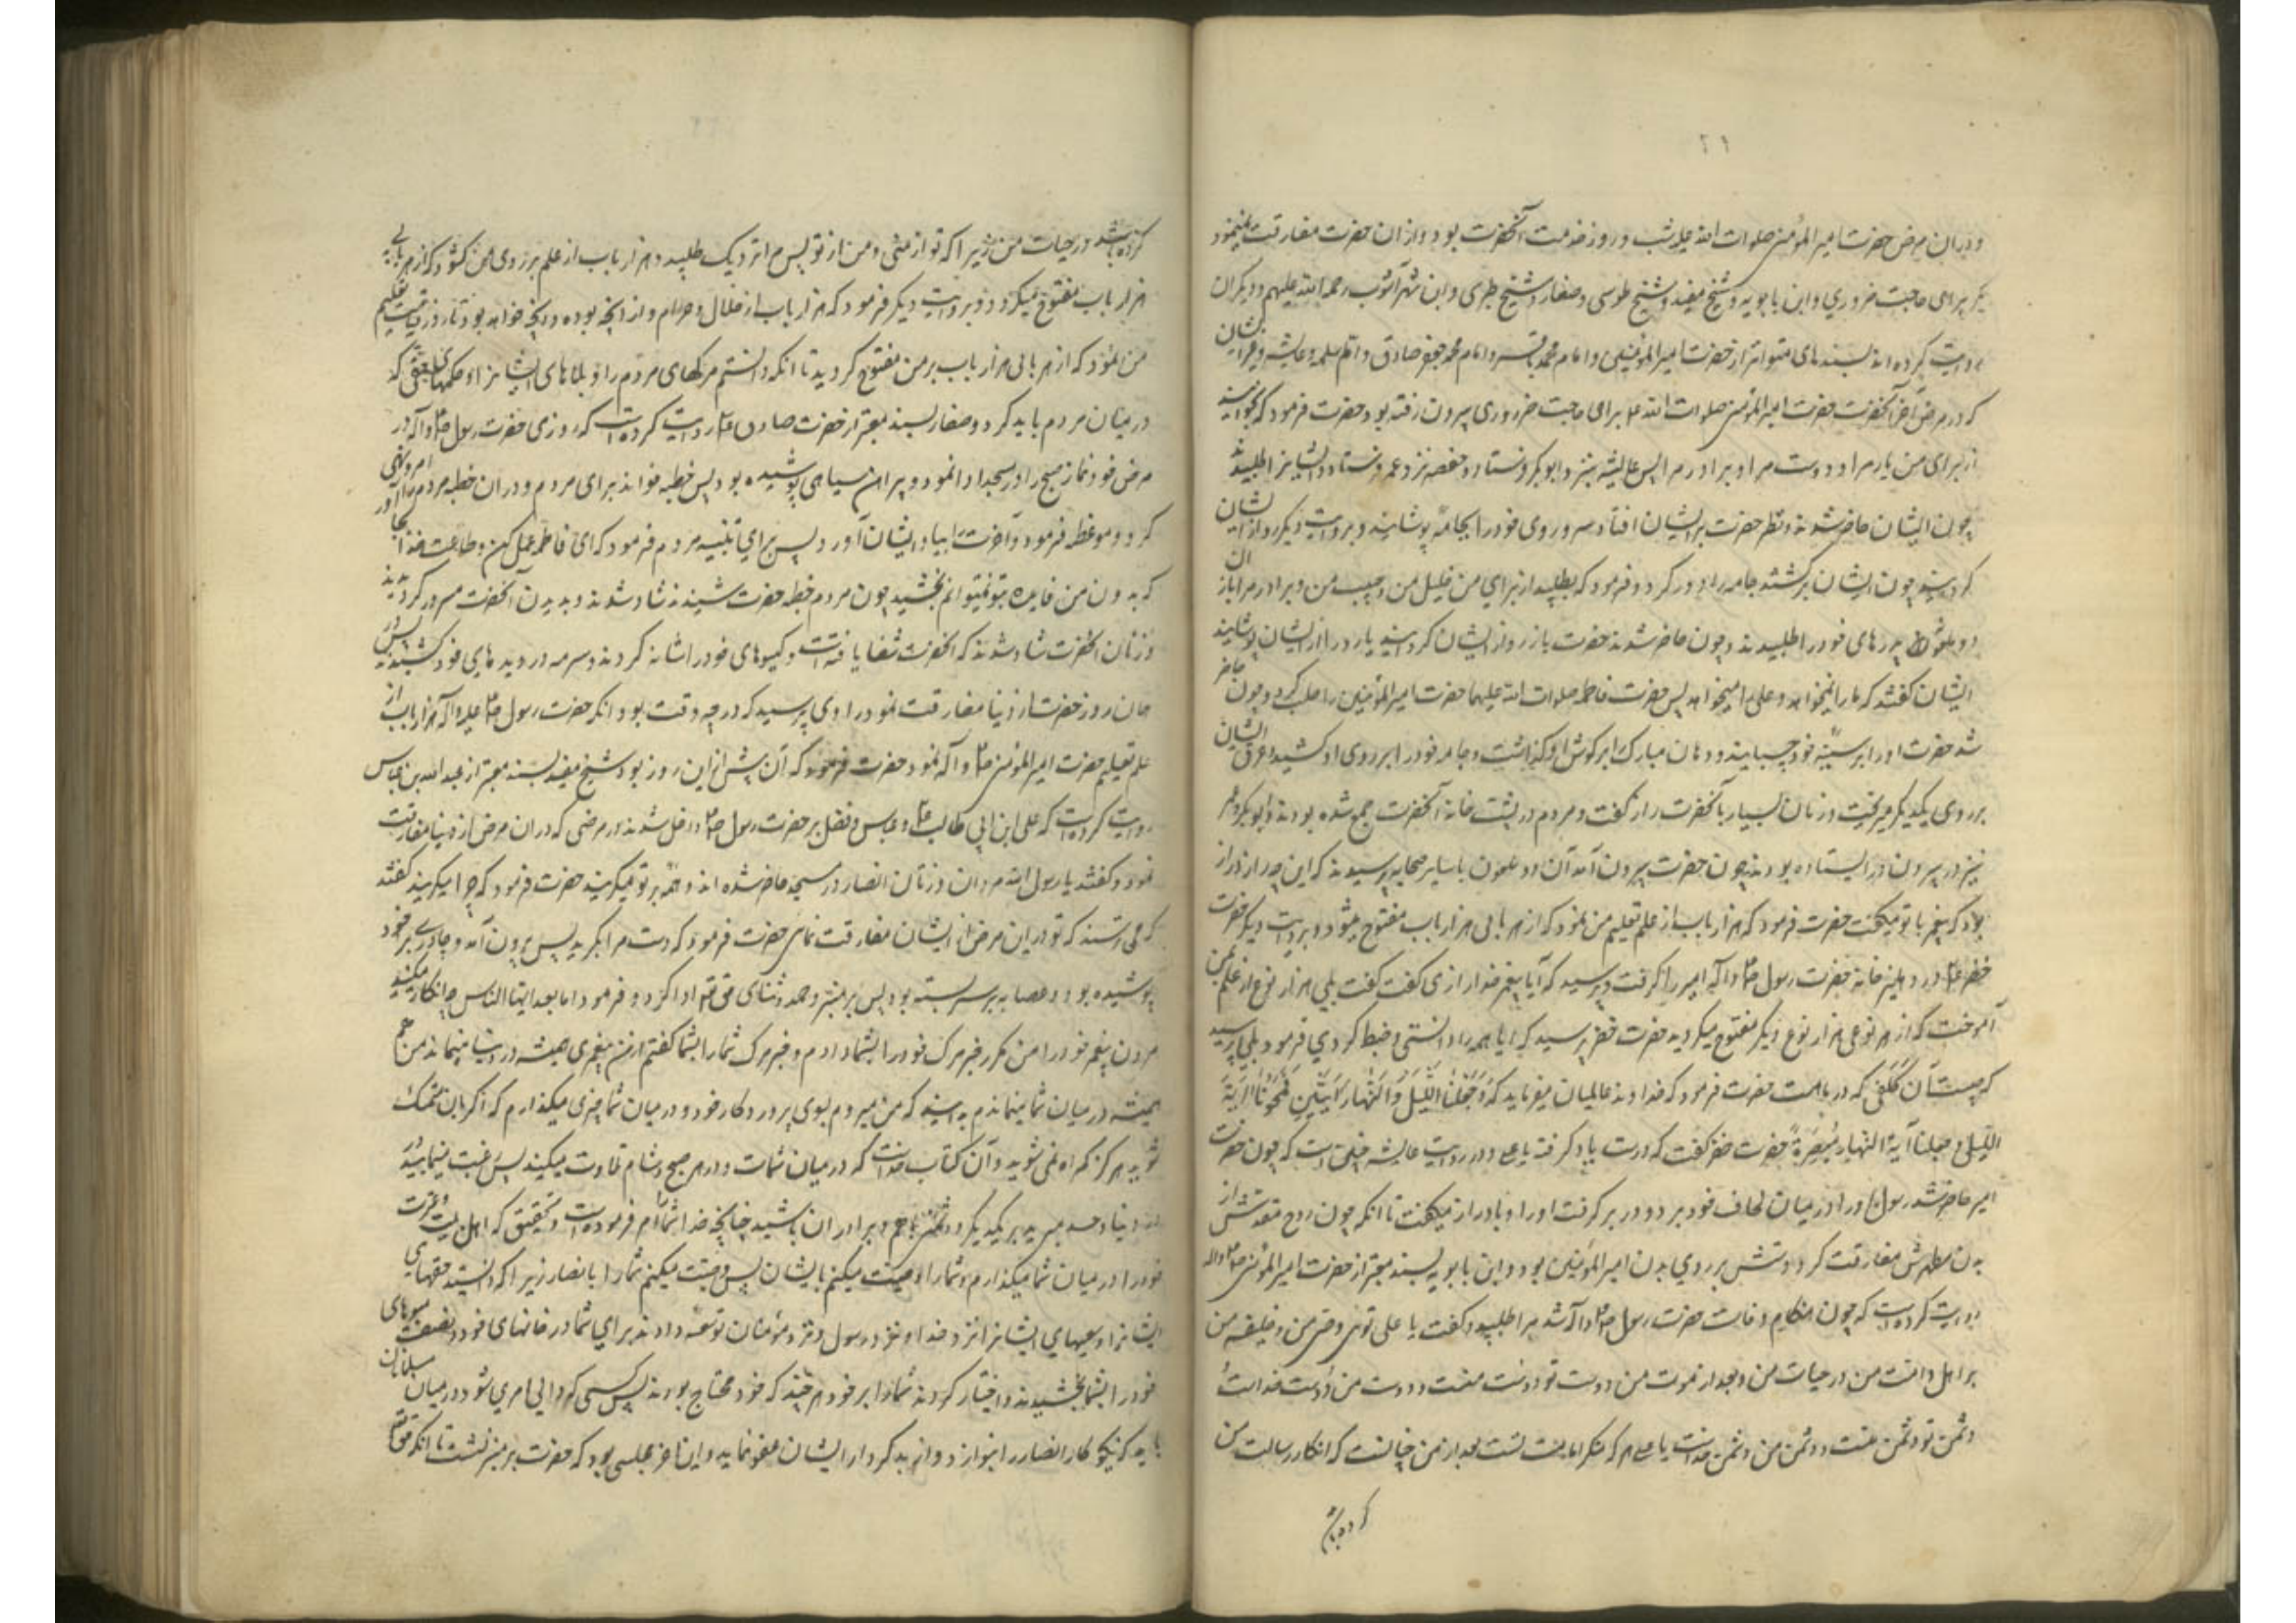 ۲۱
و در ان مرض حضرت امیر المؤمنین صلوات الله علیه شب و روز در خدمت آنحضرت بود و از ان حضرت مفارقت نمینمود
مکر برای حاجت ضروری و ابن بابویه و شیخ مفید و شیخ طوسی و صفار و شیخ طبرسی و ابن شهر آشوب رحمة الله علیهم و دیکران
روایت کرده اند بسندهای متواتر از حضرت امیر المؤمنین و امام محمد باقر و امام جعفر صادق و ام سلمه و عایشه و غیر ایشان
که در مرض آخر آنحضرت حضرت امیر المؤمنین صلوات الله علیه برای حاجت ضروری بیرون رفته بود حضرت فرمود که بخوانید
از برای من یار مرا و دوست مرا و برادر مرا پس عایشه بنزد ابوبکر فرستاد و حفصه بنزد عمر فرستاد و ایشانرا طلبید
چون ایشان حاضر شدند و نظر حضرت بر ایشان افتاد سر و روی خود را بجامه پوشانید و بروایت دیکر رو از ایشان
کردانید چون ایشان برکشتند جامه را دور کرد و فرمود که بطلبید از برای من خلیل من و حبیب من و برادر مرا باز ان
دو ملعونه پدرهای خود را طلبیدند و چون حاضر شدند حضرت باز رو از ایشان کردانید یا رو را از ایشان پوشانید
ایشان کفتند که ما را نمیخواهد و علی را میخواهد پس حضرت فاطمه صلوات الله علیها حضرت امیر المؤمنین را طلب کرد و چون حاضر
شد حضرت او را بر سینه خود چسبانید و دهان مبارک را بر کوش او کذاشت و جامه خود را بر روی او کشید و عرق ایشان
بر روی یکدیکر میریخت و زمان بسیار با آنحضرت راز کفت و مردم در پشت خانه آنحضرت جمع شده بودند و ابوبکر و عمر
نیز در بیرون در ایستاده بودند چون حضرت بیرون آمد آن دو ملعون با سایر صحابه پرسیدند که این چه راز دراز
بود که پیغمبر با تو میکفت حضرت فرمود که هزار باب از علم تعلیم من نمود که از هر بابی هزار باب مفتوح میشود و بروایت دیکر حضرت
خضر ع در دهلیز خانه حضرت رسول ص و آله امیر را کرفت و پرسید که آیا پیغمبر خدا رازی کفت کفت بلی هزار نوع از علم بمن
آموخت که از هر نوعی هزار نوع دیکر مفتوح میکردید حضرت خضر پرسید که آیا همه را دانستی و ضبط کردی فرمود بلی پرسید
که چیست آن کلفی که در ماهست حضرت فرمود که خداوند عالمیان میفرماید که وَجَعَلْنَا اللَّیْلَ وَالنَّهَارَ آیَتَیْنِ فَمَحَوْنَا آیَةَ
اللیل و جعلنا آیة النهار مُبْصِرَةً حضرت خضر کفت که درست یاد کرفته یا علی و در روایت عایشه چنین است که چون حضرت
امیر حاضر شد رسول او را در میان لحاف خود برد و در بر کرفت او را و با او راز میکفت تا آنکه چون روح مقدسش از
بدن مطهرش مفارقت کرد دستش بر روی بدن امیر المؤمنین بود و ابن بابویه بسند معتبر از حضرت امیر المؤمنین ص و اله
روایت کرده است که چون هنکام وفات حضرت رسول ص و آله شد مرا طلبید و کفت یا علی توئی وصی من و خلیفه من
بر اهل و امت من در حیات من و بعد از موت من دوست تو دوست منست و دوست من دوست خداست
دشمن تو دشمن منست و دشمن من دشمن خداست یا علی هر که منکر امامت تست بعد از من چنانست که انکار رسالت من
کرده باشد
کرده باشد در حیات من زیرا که تو از منی و من از تو پس مرا نزدیک طلبید و هزار باب از علم بر روی من کشود که از هر بابی
هزار باب مفتوح میکردد و بروایت دیکر فرمود که هزار باب از حلال و حرام و از آنچه بوده و آنچه خواهد بود تا روز قیامت تعلیم
من نمود که از هر بابی هزار باب بر من مفتوح کردید تا آنکه دانستم مرکهای مردم را و بلاهای ایشانرا و حکمهای حقی که
در میان مردم باید کرد و صفار بسند معتبر از حضرت صادق ع روایت کرده است که روزی حضرت رسول ص و آله در
مرض خود نماز صبح را در مسجد ادا نمود و پیراهن سیاهی پوشیده بود پس خطبه خواند برای مردم و در ان خطبه مردم را امر و نهی
کرد و موعظه فرمود و آخرت را بیاد ایشان آورد پس برای تنبیه مردم فرمود که ای فاطمه عمل کن و طاعت خدا بجا آور
که بدون من فایده بتو نمیتوانم بخشید چون مردم خطبه حضرت شنیدند شاد شدند و بدیدن آنحضرت مسرور کردیدند
و زنان آنحضرت شاد شدند که آنحضرت شفا یافته است و کیسوهای خود را شانه کردند و سرمه در دیدهای خود کشیدند پس در
همان روز حضرت از دنیا مفارقت نمود راوی پرسید که در چه وقت بود آنکه حضرت رسول ص علیه و آله هزار باب از
علم تعلیم حضرت امیر المؤمنین ص و آله نمود حضرت فرمود که آن پیش از این روز بود شیخ مفید بسند معتبر از عبد الله بن عباس
روایت کرده است که علی ابن ابی طالب ع و عباس و فضل بر حضرت رسول ص داخل شدند در مرضی که در ان مرض از دنیا مفارقت
نمود و کفتند یا رسول الله مردان و زنان انصار در مسجد حاضر شده اند و همه بر تو میکریند حضرت فرمود که چرا میکریند کفتند
که می ترسند که تو در این مرض از ایشان مفارقت نمائی حضرت فرمود که دست مرا بکیرید پس بیرون آمد و چادری بر خود
پوشیده بود و عصابه بر سر بسته بود پس بر منبر و حمد و ثنای حق تعالی ادا کرد و فرمود اما بعد ایها الناس چه انکار میکنید
مردن پیغمبر خود را من مکرر خبر مرک خود را بشما دادم و خبر مرک شما را بشما کفتم اکر من پیغمبری همیشه در دنیا میماند من هم
همیشه در میان شما میماندم بدانید که من میروم بسوی پروردکار خود و در میان شما چیزی میکذارم که اکر باین متمسک
شوید هرکز کمراه نمی شوید و آن کتاب خداست که در میان شماست و در هر صبح و شام تلاوت میکنید پس رغبت منمائید
در دنیا و حسد مبرید بر یکدیکر و دشمنی با هم و برادران باشید چنانچه خدا شما را امر فرموده است و بتحقیق که اهل بیت و عترت
خود را در میان شما میکذارم و شما را وصیت میکنم بایشان پس وصیت میکنم شما را بانصار زیرا که دانستید حقهای
ایشانرا و سعیهای ایشانرا نزد خدا و نزد رسول و نزد مؤمنان توسعه دادند برای شما در خانهای خود و نصف میوهای
خود را بشما بخشیدند و اختیار کردند شما را بر خود هر چند که خود محتاج بودند پس کسی که والی امری شود در میان مسلمانان
باید که نیکوکار انصار را بنوازد و از بدکردار ایشان عفو نماید و این آخر مجلسی بود که حضرت بر منبر نشست تا آنکه حق تعالی